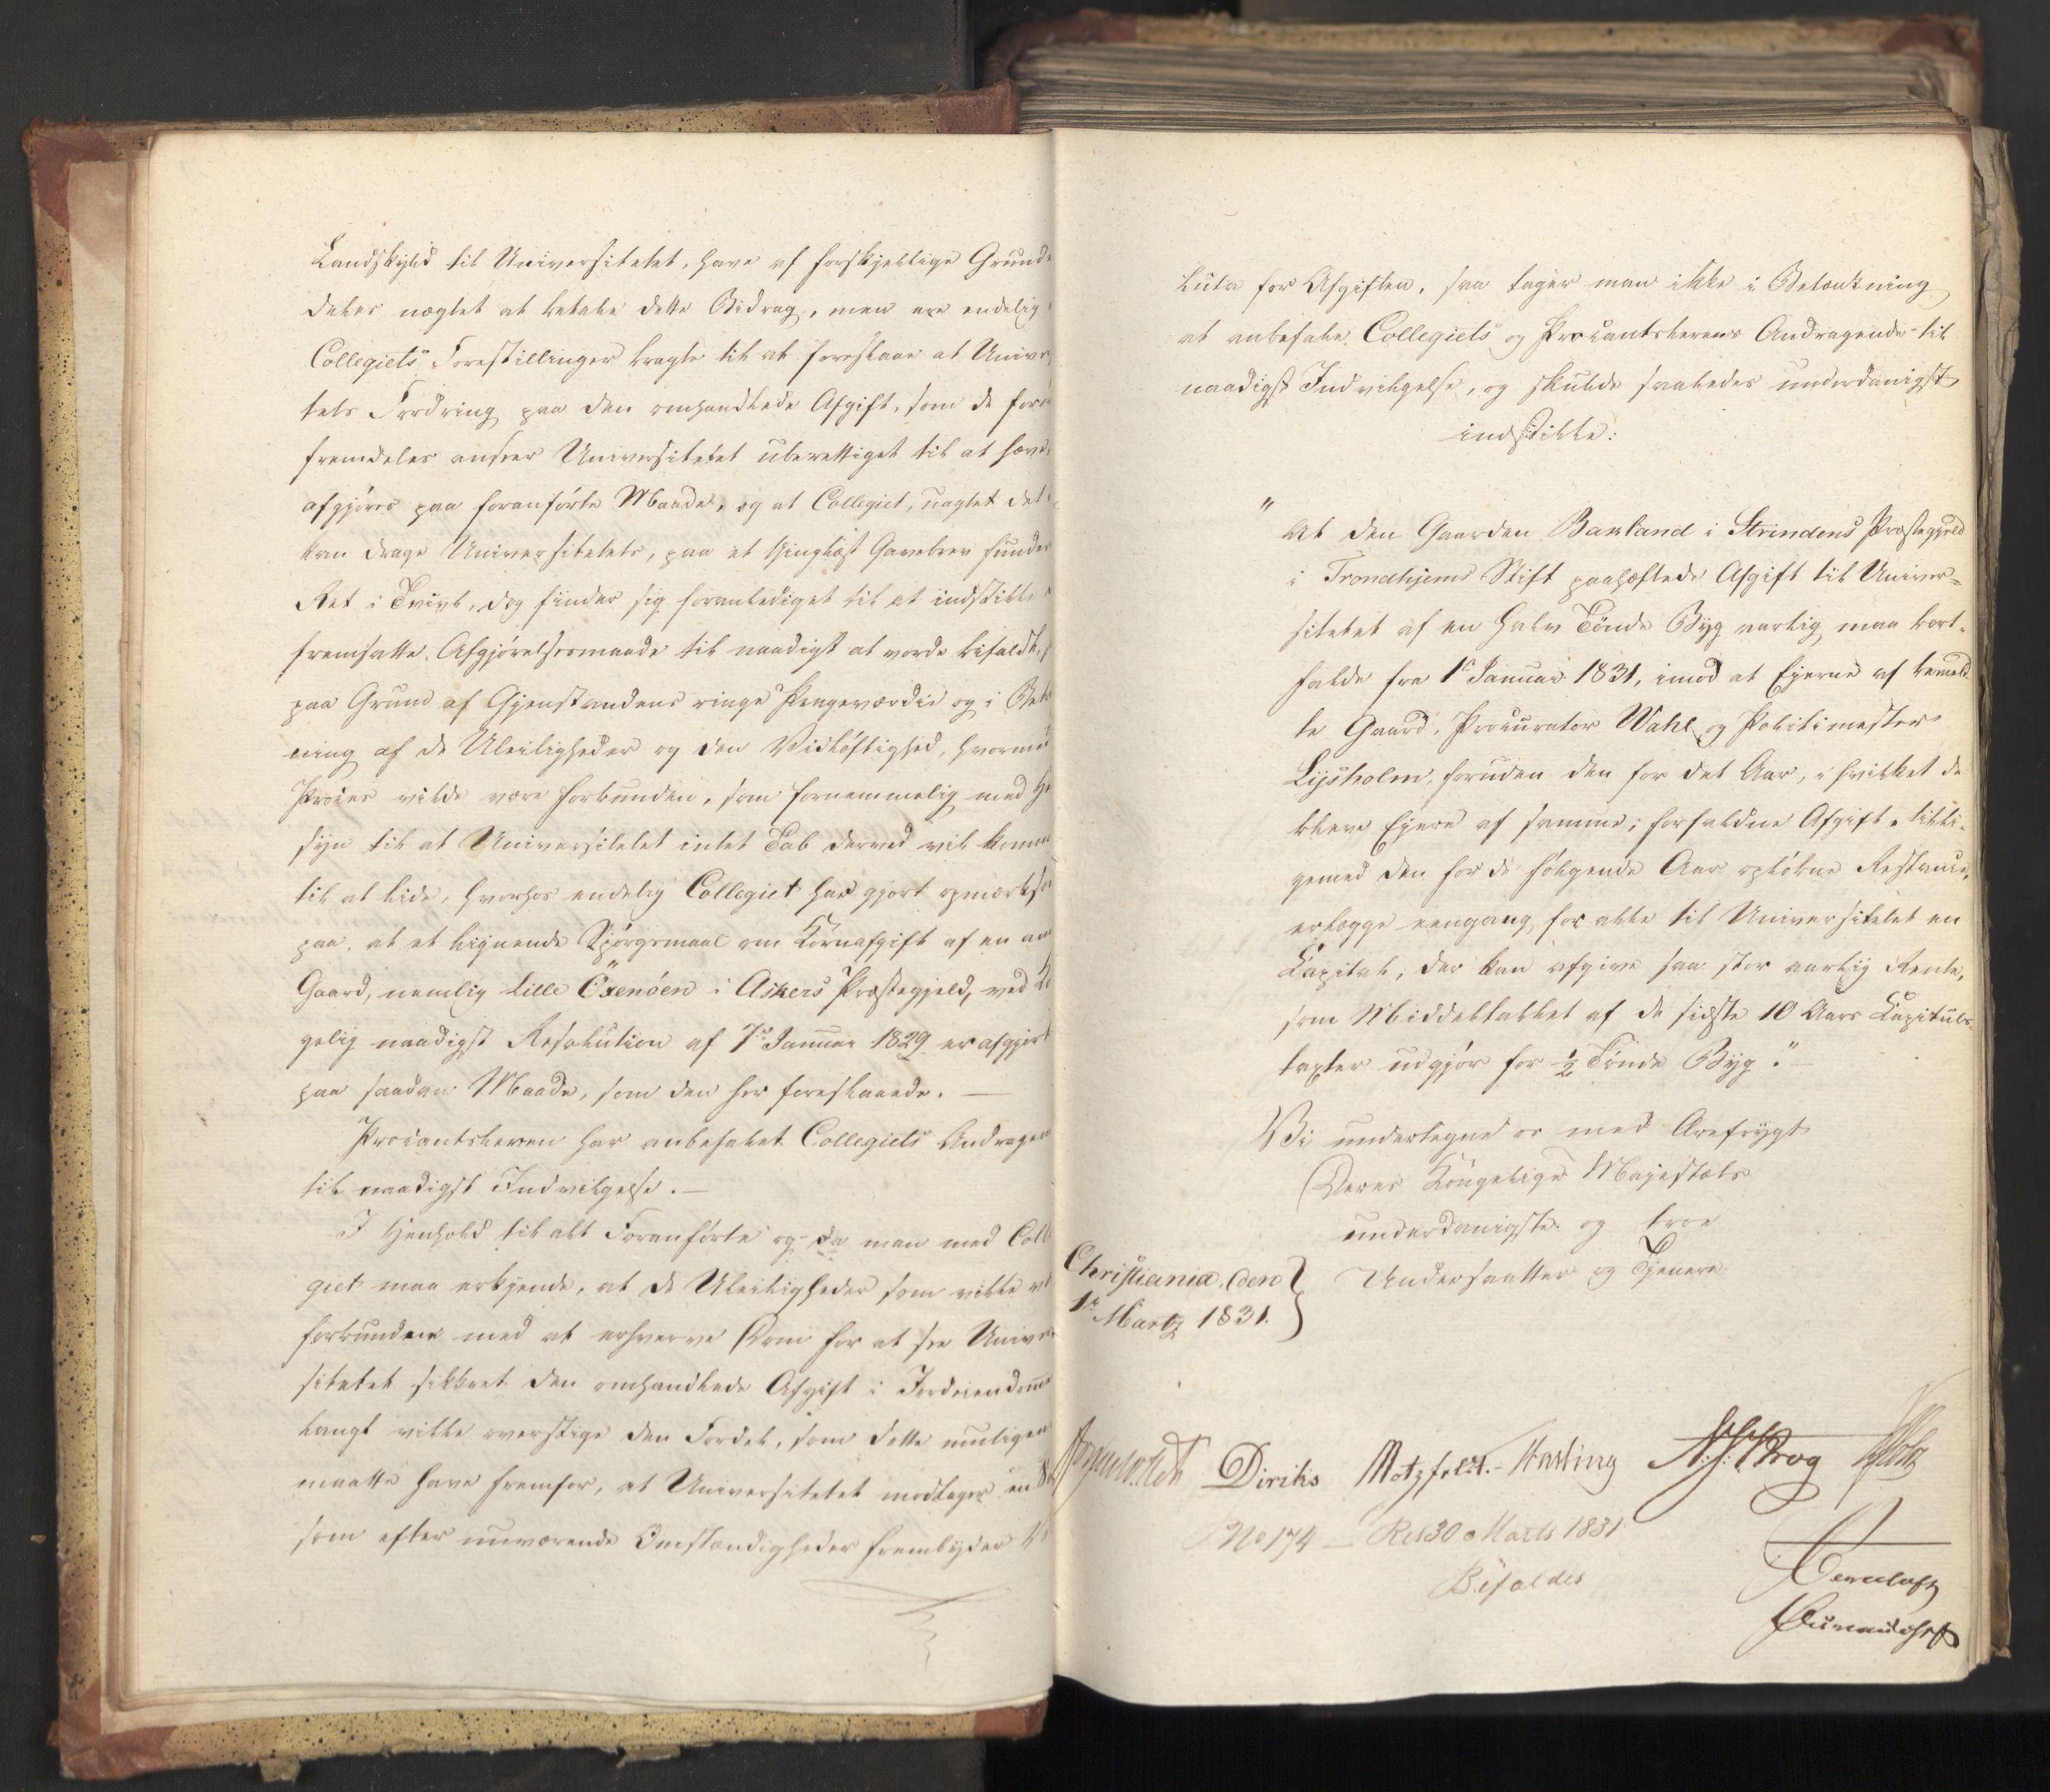 Landskyld til Universitetet, have af forskjellige Grunde
deles nægtet at betale dette Bidrag, men ere endelig
Collegiets Forestillinger bragte til at foreslaae at Univer
tets Fordring paa den omhandlede Afgift, som de
fremdeles ansee Universitetet uberettiget til at hæve,
afgjøres paa foranførte Maade, og at Collegiet, uagtet det
kan drage Universitetets, paa et thinglæst Gavebrev funde
Ret i Tvivl, dog finder sig foranlediget til at indstille
fremsatte Afgjørelsesmaade til naadigst at vorde bifaldt,
paa Grund af Gjenstandens ringe Pengeværdie og i Bet
ning af de Uleiligheder og den Vidtløftighed, hvormed
Proces vilde være forbunden, som fornemmelig med He
syn til at Universitetet intet Tab derved vil komme
til at lide, hvorhos endelig Collegiet har gjort opmærkso
paa, at et lignende Spørgsmaal om Kornafgift af en an
Gaard, nemlig lille Öxenöen i Askers Præstegjeld, ved Ko
gelig naadigst Resolution af 7de Januar 1829 er afgjort
paa saadan Maade, som den her foreslaaede. —
Procantsleren har anbefalet Collegiets Andragen
til naadigst Indvilgelse. —
I Henhold til alt Foranførte og da man med Colle
giet maa erkjende, at de Uleiligheder som ville være
forbundne med at erhverve Dom for at see Univer
sitetet sikkret den omhandlede Afgift i Jordeiendomme
langt ville overstige den Fordel, som dette muligen
maatte have fremfor, at Universitetet modtager en
som efter nuværende Omstændigheder frembyder
luta for Afgiften, saa tager man ikke i Betænkning
at anbefale Collegiets og Procantslerens Andragende til
naadigst Indvilgelse, og skulde saaledes underdanigst
indstille:
"At den Gaarden Bakland i Strindens Præstegjeld
i Trondhjems Stift paahæftede Afgift til Univer=
sitetet af en halv Tønde Byg aarlig maa bort-
falde fra 1te Januar 1831, imod at Eierne af bemeld-
te Gaard, Procurator Wahl og Politimester
Lysholm, foruden den for det Aar, i hvilket de
bleve Eiere af samme, forfaldne Afgift, tilli-
gemed den for de følgende Aar opløbne Restance,
erlægge eengang for alle til Universitetet en
Kapital, der kan afgive saa stor aarlig Rente,
som Middeltallet af de sidste 10 Aars Kapituls-
taxter udgjør for ½ Tønde Byg." —
Vi undertegne os med Ærefrygt
Deres Kongelige Majestæts
underdanigste og troe
Undersaatter og Tjenere
Christiania, den
1te Martz 1831.
Diriks Motzfeldt. Harting
No 174 — Res 30 Marts 1831
Bifaldes